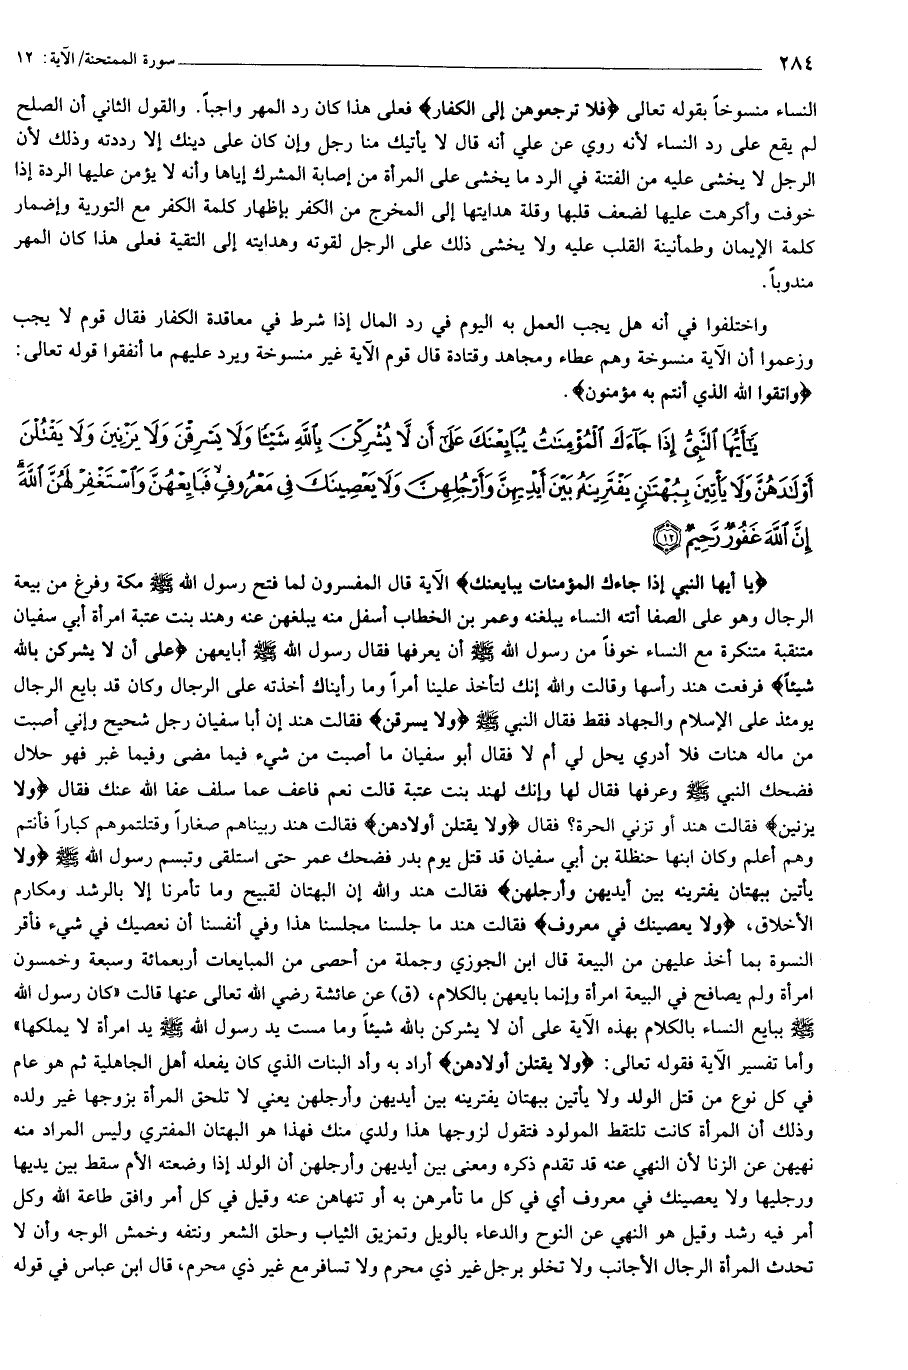 ٢٨٤ سورة الممتحنة/ الآية: ١٢
النساء منسوخاً بقوله تعالى ﴿فلا ترجعوهن إلى الكفار﴾ فعلى هذا كان رد المهر واجباً. والقول الثاني أن الصلح
لم يقع على رد النساء لأنه روي عن علي أنه قال لا يأتيك منا رجل وإن كان على دينك إلا رددته وذلك لأن
الرجل لا يخشى عليه من الفتنة في الرد ما يخشى على المرأة من إصابة المشرك إياها وأنه لا يؤمن عليها الردة إذا
خوفت وأكرهت عليها لضعف قلبها وقلة هدايتها إلى المخرج من الكفر بإظهار كلمة الكفر مع التورية وإضمار
كلمة الإيمان وطمأنينة القلب عليه ولا يخشى ذلك على الرجل لقوته وهدايته إلى التقية فعلى هذا كان المهر
مندوباً.
واختلفوا في أنه هل يجب العمل به اليوم في رد المال إذا شرط في معاقدة الكفار فقال قوم لا يجب
وزعموا أن الآية منسوخة وهم عطاء ومجاهد وقتادة قال قوم الآية غير منسوخة ويرد عليهم ما أنفقوا قوله تعالى:
﴿واتقوا الله الذي أنتم به مؤمنون﴾.
يَٰٓأَيُّهَا ٱلنَّبِىُّ إِذَا جَآءَكَ ٱلْمُؤْمِنَٰتُ يُبَايِعْنَكَ عَلَىٰٓ أَن لَّا يُشْرِكْنَ بِٱللَّهِ شَيْـًٔا وَلَا يَسْرِقْنَ وَلَا يَزْنِينَ وَلَا يَقْتُلْنَ
أَوْلَٰدَهُنَّ وَلَا يَأْتِينَ بِبُهْتَٰنٍ يَفْتَرِينَهُۥ بَيْنَ أَيْدِيهِنَّ وَأَرْجُلِهِنَّ وَلَا يَعْصِينَكَ فِى مَعْرُوفٍ ۙ فَبَايِعْهُنَّ وَٱسْتَغْفِرْ لَهُنَّ ٱللَّهَ ۖ
إِنَّ ٱللَّهَ غَفُورٌ رَّحِيمٌ ﴿١٢﴾
﴿يا أيها النبي إذا جاءك المؤمنات يبايعنك﴾ الآية قال المفسرون لما فتح رسول الله ﷺ مكة وفرغ من بيعة
الرجال وهو على الصفا أتته النساء يبلغنه وعمر بن الخطاب أسفل منه يبلغهن عنه وهند بنت عتبة امرأة أبي سفيان
متنقبة متنكرة مع النساء خوفاً من رسول الله ﷺ أن يعرفها فقال رسول الله ﷺ أبايعهن ﴿على أن لا يشركن بالله
شيئاً﴾ فرفعت هند رأسها وقالت والله إنك لتأخذ علينا أمراً وما رأيناك أخذته على الرجال وكان قد بايع الرجال
يومئذ على الإسلام والجهاد فقط فقال النبي ﷺ ﴿ولا يسرقن﴾ فقالت هند إن أبا سفيان رجل شحيح وإني أصبت
من ماله هنات فلا أدري يحل لي أم لا فقال أبو سفيان ما أصبت من شيء فيما مضى وفيما غبر فهو حلال
فضحك النبي ﷺ وعرفها فقال لها وإنك لهند بنت عتبة قالت نعم فاعف عما سلف عفا الله عنك فقال ﴿ولا
يزنين﴾ فقالت هند أو تزني الحرة؟ فقال ﴿ولا يقتلن أولادهن﴾ فقالت هند ربيناهم صغاراً وقتلتموهم كباراً فأنتم
وهم أعلم وكان ابنها حنظلة بن أبي سفيان قد قتل يوم بدر فضحك عمر حتى استلقى وتبسم رسول الله ﷺ ﴿ولا
يأتين ببهتان يفترينه بين أيديهن وأرجلهن﴾ فقالت هند والله إن البهتان لقبيح وما تأمرنا إلا بالرشد ومكارم
الأخلاق، ﴿ولا يعصينك في معروف﴾ فقالت هند ما جلسنا مجلسنا هذا وفي أنفسنا أن نعصيك في شيء فأقر
النسوة بما أخذ عليهن من البيعة قال ابن الجوزي وجملة من أحصى من المبايعات أربعمائة وسبعة وخمسون
امرأة ولم يصافح في البيعة امرأة وإنما بايعهن بالكلام، (ق) عن عائشة رضي الله تعالى عنها قالت «كان رسول الله
ﷺ يبايع النساء بالكلام بهذه الآية على أن لا يشركن بالله شيئاً وما مست يد رسول الله ﷺ يد امرأة لا يملكها»
وأما تفسير الآية فقوله تعالى: ﴿ولا يقتلن أولادهن﴾ أراد به وأد البنات الذي كان يفعله أهل الجاهلية ثم هو عام
في كل نوع من قتل الولد ولا يأتين ببهتان يفترينه بين أيديهن وأرجلهن يعني لا تلحق المرأة بزوجها غير ولده
وذلك أن المرأة كانت تلتقط المولود فتقول لزوجها هذا ولدي منك فهذا هو البهتان المفتري وليس المراد منه
نهيهن عن الزنا لأن النهي عنه قد تقدم ذكره ومعنى بين أيديهن وأرجلهن أن الولد إذا وضعته الأم سقط بين يديها
ورجليها ولا يعصينك في معروف أي في كل ما تأمرهن به أو تنهاهن عنه وقيل في كل أمر وافق طاعة الله وكل
أمر فيه رشد وقيل هو النهي عن النوح والدعاء بالويل وتمزيق الثياب وحلق الشعر ونتفه وخمش الوجه وأن لا
تحدث المرأة الرجال الأجانب ولا تخلو برجل غير ذي محرم ولا تسافر مع غير ذي محرم، قال ابن عباس في قوله